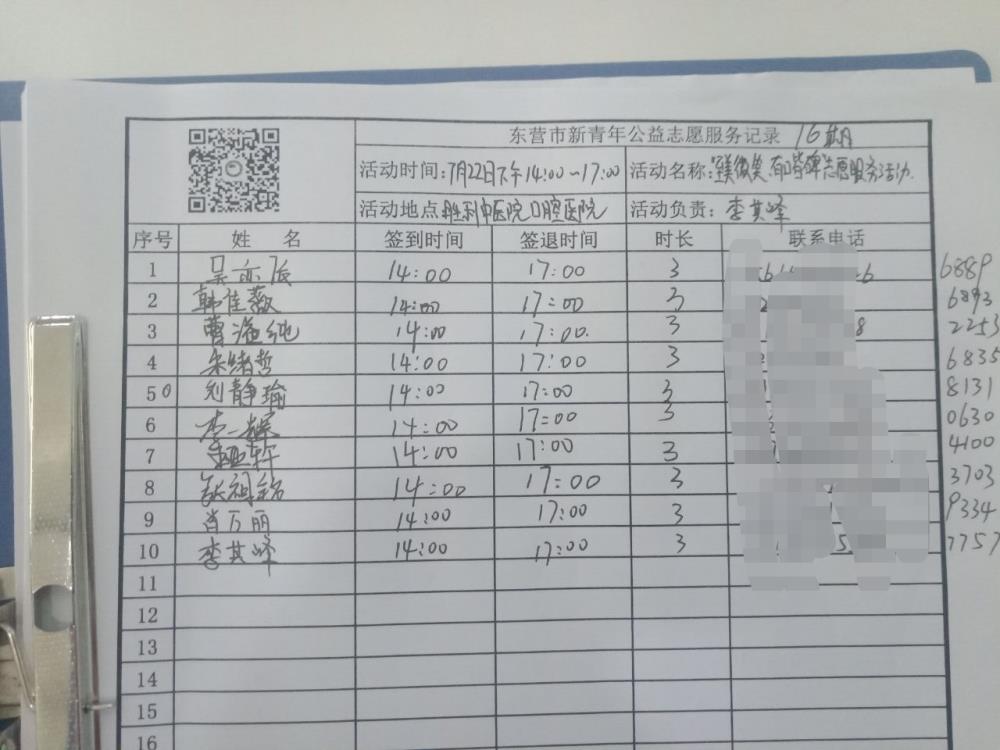 东营市新青年公益志愿服务记录 16期
活动时间:7月22日下午14:00~17:00 活动名称: 微笑 有口皆碑志愿服务活动.
活动地点:胜利中医院口腔医院 活动负责:李其峰
序号 姓 名 签到时间 签退时间 时长 联系电话
1 吴亦 14:00 17:00 3 6889
2 韩佳 14:00 17:00 3 6893
3 曹 纯 14:00 17:00. 3 8 2253
4 朱绪哲 14:00 17:00 3 6835
5 刘静瑜 14:00 17:00 3 8131
6 李一 14:00 17:00 3 0630
7 轩 14:00 17:00 3 4100
8 张祖铭 14:00 17:00 3 3703
9 肖万丽 14:00 17:00 3 9334
10 李其峰 14:00 17:00 3 5 7757
11
12
13
14
15
16